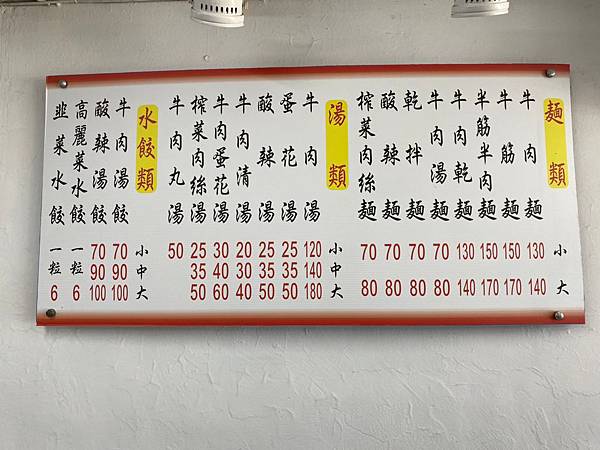 麵類 小 大
牛肉麵 130 140
牛筋麵 150 170
半筋半肉麵 150 170
牛肉乾麵 130 140
牛肉湯麵 70 80
乾拌麵 70 80
酸辣麵 70 80
榨菜肉絲麵 70 80
湯類 小 中 大
牛肉湯 120 140 180
蛋花湯 25 35 50
酸辣湯 25 35 50
牛肉清湯 20 30 40
牛肉蛋花湯 30 40 60
榨菜肉絲湯 25 35 50
牛肉丸湯 50
水餃類 小 中 大
牛肉湯餃 70 90 100
酸辣湯餃 70 90 100
高麗菜水餃 一粒 6
韭菜水餃 一粒 6